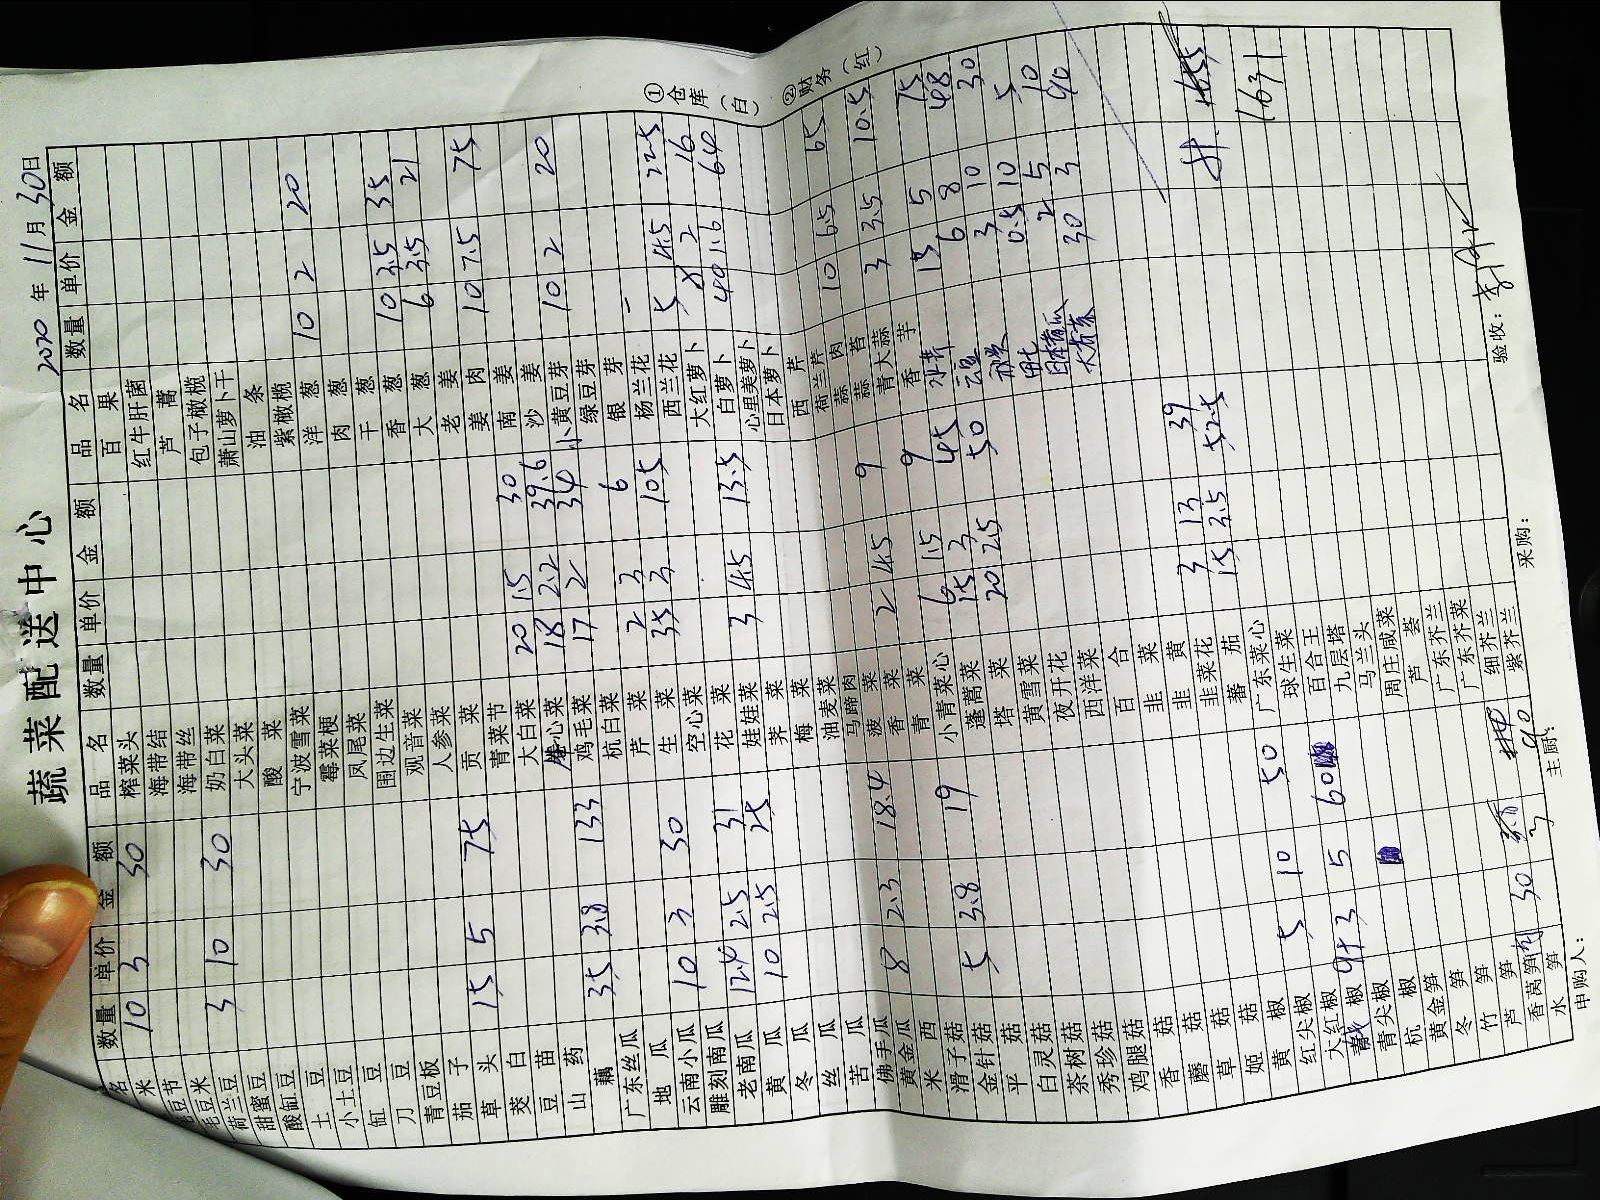 蔬菜配送中心
2020 年 11 月 30 日
名 数量 单价 金额 品名 数量 单价 金额 品名 数量 单价 金额
米 10 3 30 榨菜头 百果
豆节 海带结 红牛肝菌
毛豆米 海带丝 芦蒿
荷兰豆 3 10 30 奶白菜 包子橄榄
甜蜜豆 大头菜 萧山萝卜干
酸缸豆 酸菜 油条
土豆 宁波雪菜 紫橄榄
小土豆 霉菜梗 洋葱 10 2 20
缸豆 凤尾菜 肉葱
刀豆 围边生菜 干葱
青豆板 观音菜 香葱 10 3.5 35
茄子 人参菜 大葱 6 3.5 21
草头 15 5 75 贡菜 老姜
茭白 青菜节 姜肉 10 7.5 75
豆苗 大白菜 20 1.5 30 南姜
山药 心菜 18 2.2 39.6 沙姜
藕 35 3.8 133 鸡毛菜 17 2 34 小黄豆芽 10 2 20
广东丝瓜 杭白菜 绿豆芽
地瓜 芹菜 2 3 6 银芽
云南小瓜 10 3 30 生菜 35 3 105 杨兰花
雕刻南瓜 空心菜 西兰花 5 4.5 22.5
老南瓜 12.4 2.5 31 花菜 大红萝卜 8 2 16
黄瓜 10 2.5 25 娃娃菜 3 4.5 13.5 白萝卜 40 1.6 64
冬瓜 荠菜 心里美萝卜
丝瓜 梅菜 日本萝卜
苦瓜 油麦菜 西芹 10 6.5 65
佛手瓜 8 2.3 18.4 马蹄肉 荷兰芹
黄金瓜 菠菜 2 4.5 9 蒜肉 3 3.5 10.5
米西 香菜 蒜苔
滑子菇 5 3.8 19 青菜 6 1.5 9 青大蒜 15 5 75
金针菇 小青菜心 15 3 45 香芋 6 8 48
平菇 蓬蒿菜 20 2.5 50 水芹 3 10 30
白灵菇 塔菜 0.5 10 5
茶树菇 黄雪菜 2 5 10
秀珍菇 夜开花 30 3 90
鸡腿菇 西洋菜
香菇 百合
蘑菇 韭菜
草菇 韭黄 3 13 39
姬菇 韭菜花 15 3.5 52.5
黄椒 5 10 50 蕃茄
红尖椒 广东菜心
大红椒 球生菜 1631
椒 百合王
青尖椒 九层塔
杭椒 马兰头
黄金笋 周庄咸菜
冬笋 芦荟
竹笋 广东芥兰
芦笋 广东芥菜
香莴笋 细芥兰
水笋 30 3 90 紫芥兰
申购人： 主厨： 采购： 验收：
①仓库（白）
②财务（红）